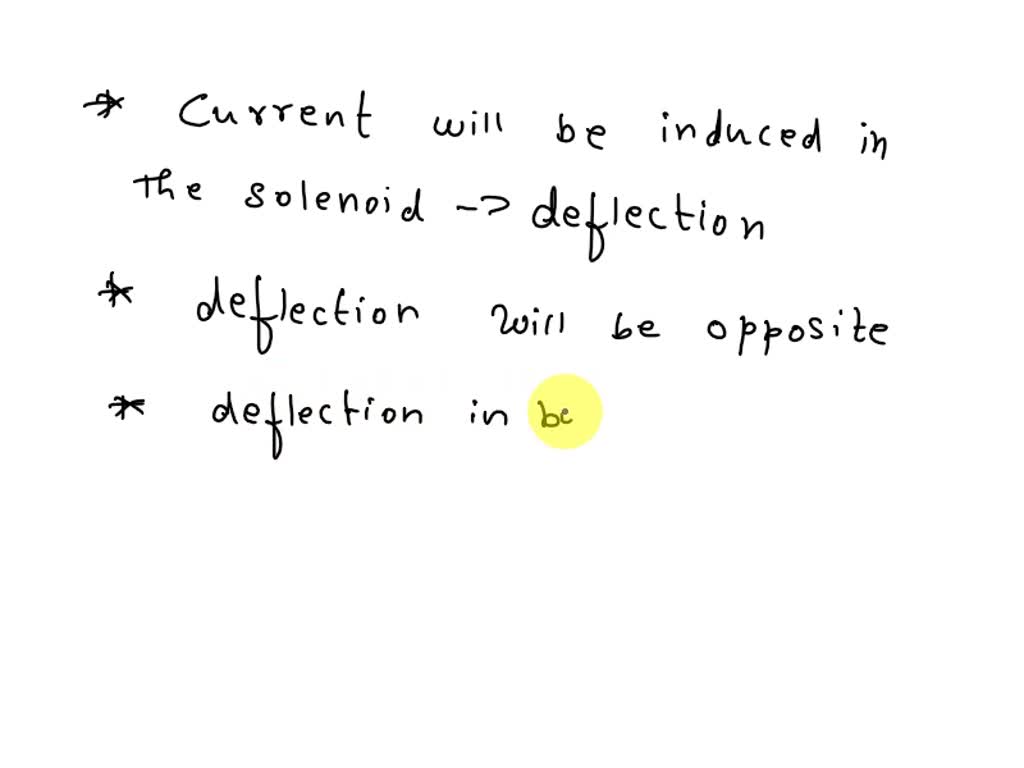 * Current will be induced in
the solenoid -> deflection
* deflection will be opposite
* deflection in be